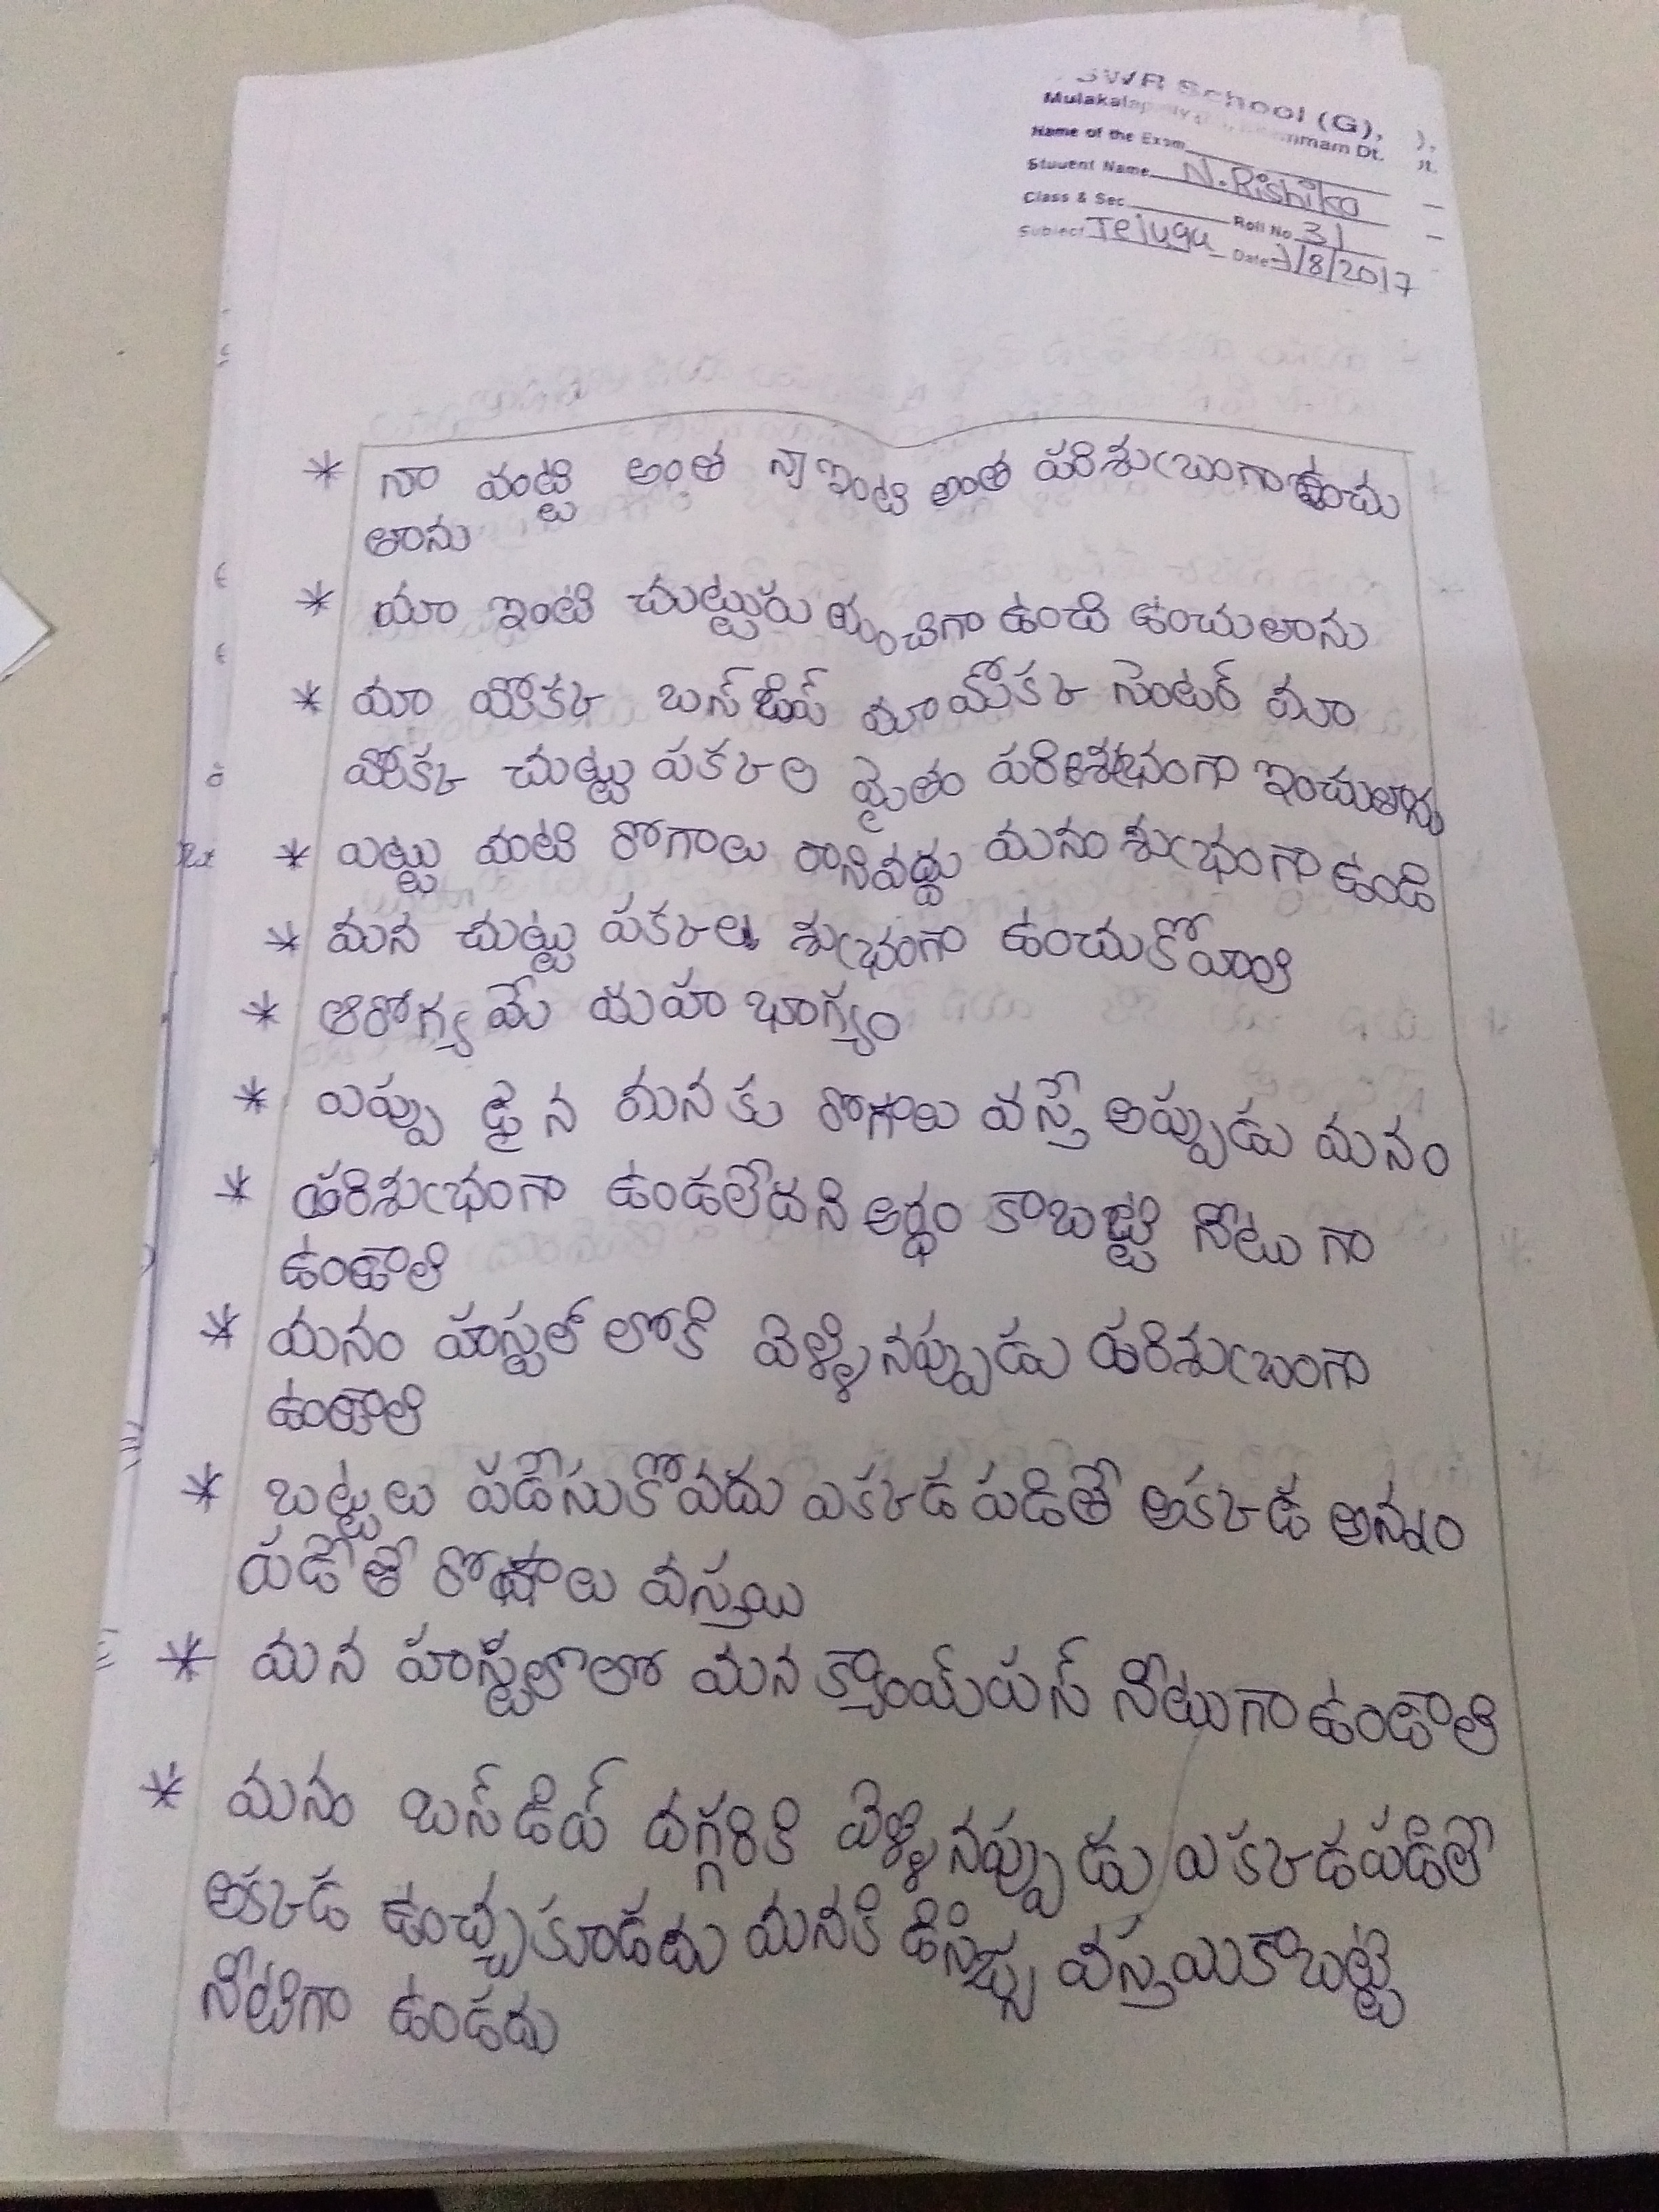 SWR School (G),
Mulakalapally Dt.
Name of the Exam
Student Name N. Rishika
Class & Sec Roll No. 31
Subject Telugu Date 7/8/2017
* నా వంట్టి అంత నా ఇంటి అంత పరిశుబంగా ఉంచు
తాను
* మా ఇంటి చుట్టురు శుచిగా ఉండి ఉంచుతాను
* మా యోకక బస్ మా యోకక సెంటర్ మా
యోకక చుట్టు పకకల సైతం పరిశుభంగా ఇంచుతాను
* ఎట్టు వంటి రోగాలు రానివద్దు మనం శుభంగా ఉండి
* మన చుట్టు పకకల శుభంగా ఉంచుకోవాలి
* ఆరోగ్య మే మహ భాగ్యం
* ఎప్పు డైన మనకు రోగాలు వస్తే అప్పుడు మనం
* పరిశుభంగా ఉండలేదని అర్ధం కాబట్టి నీటు గా
ఉండాలి
* మనం హస్టల్ లోకి వెళ్ళినప్పుడు పరిశుబంగా
ఉండాలి
* బట్టలు పడేసుకోవదు ఎకకడ పడితే అకకడ అన్నం
పడేతే రోగాలు వస్తయి
* మన హాస్టల్‌లో మన క్యాంయ్‌పస్ నీటుగా ఉండాలి
* మనం బస్ డిప్ దగ్గరికి వెళ్ళినప్పుడు ఎకకడపడితే
అకకడ ఉంచ్చకూడదు మనకి డిసిజ్స వస్తయికాబట్టి
నీటిగా ఉండదు